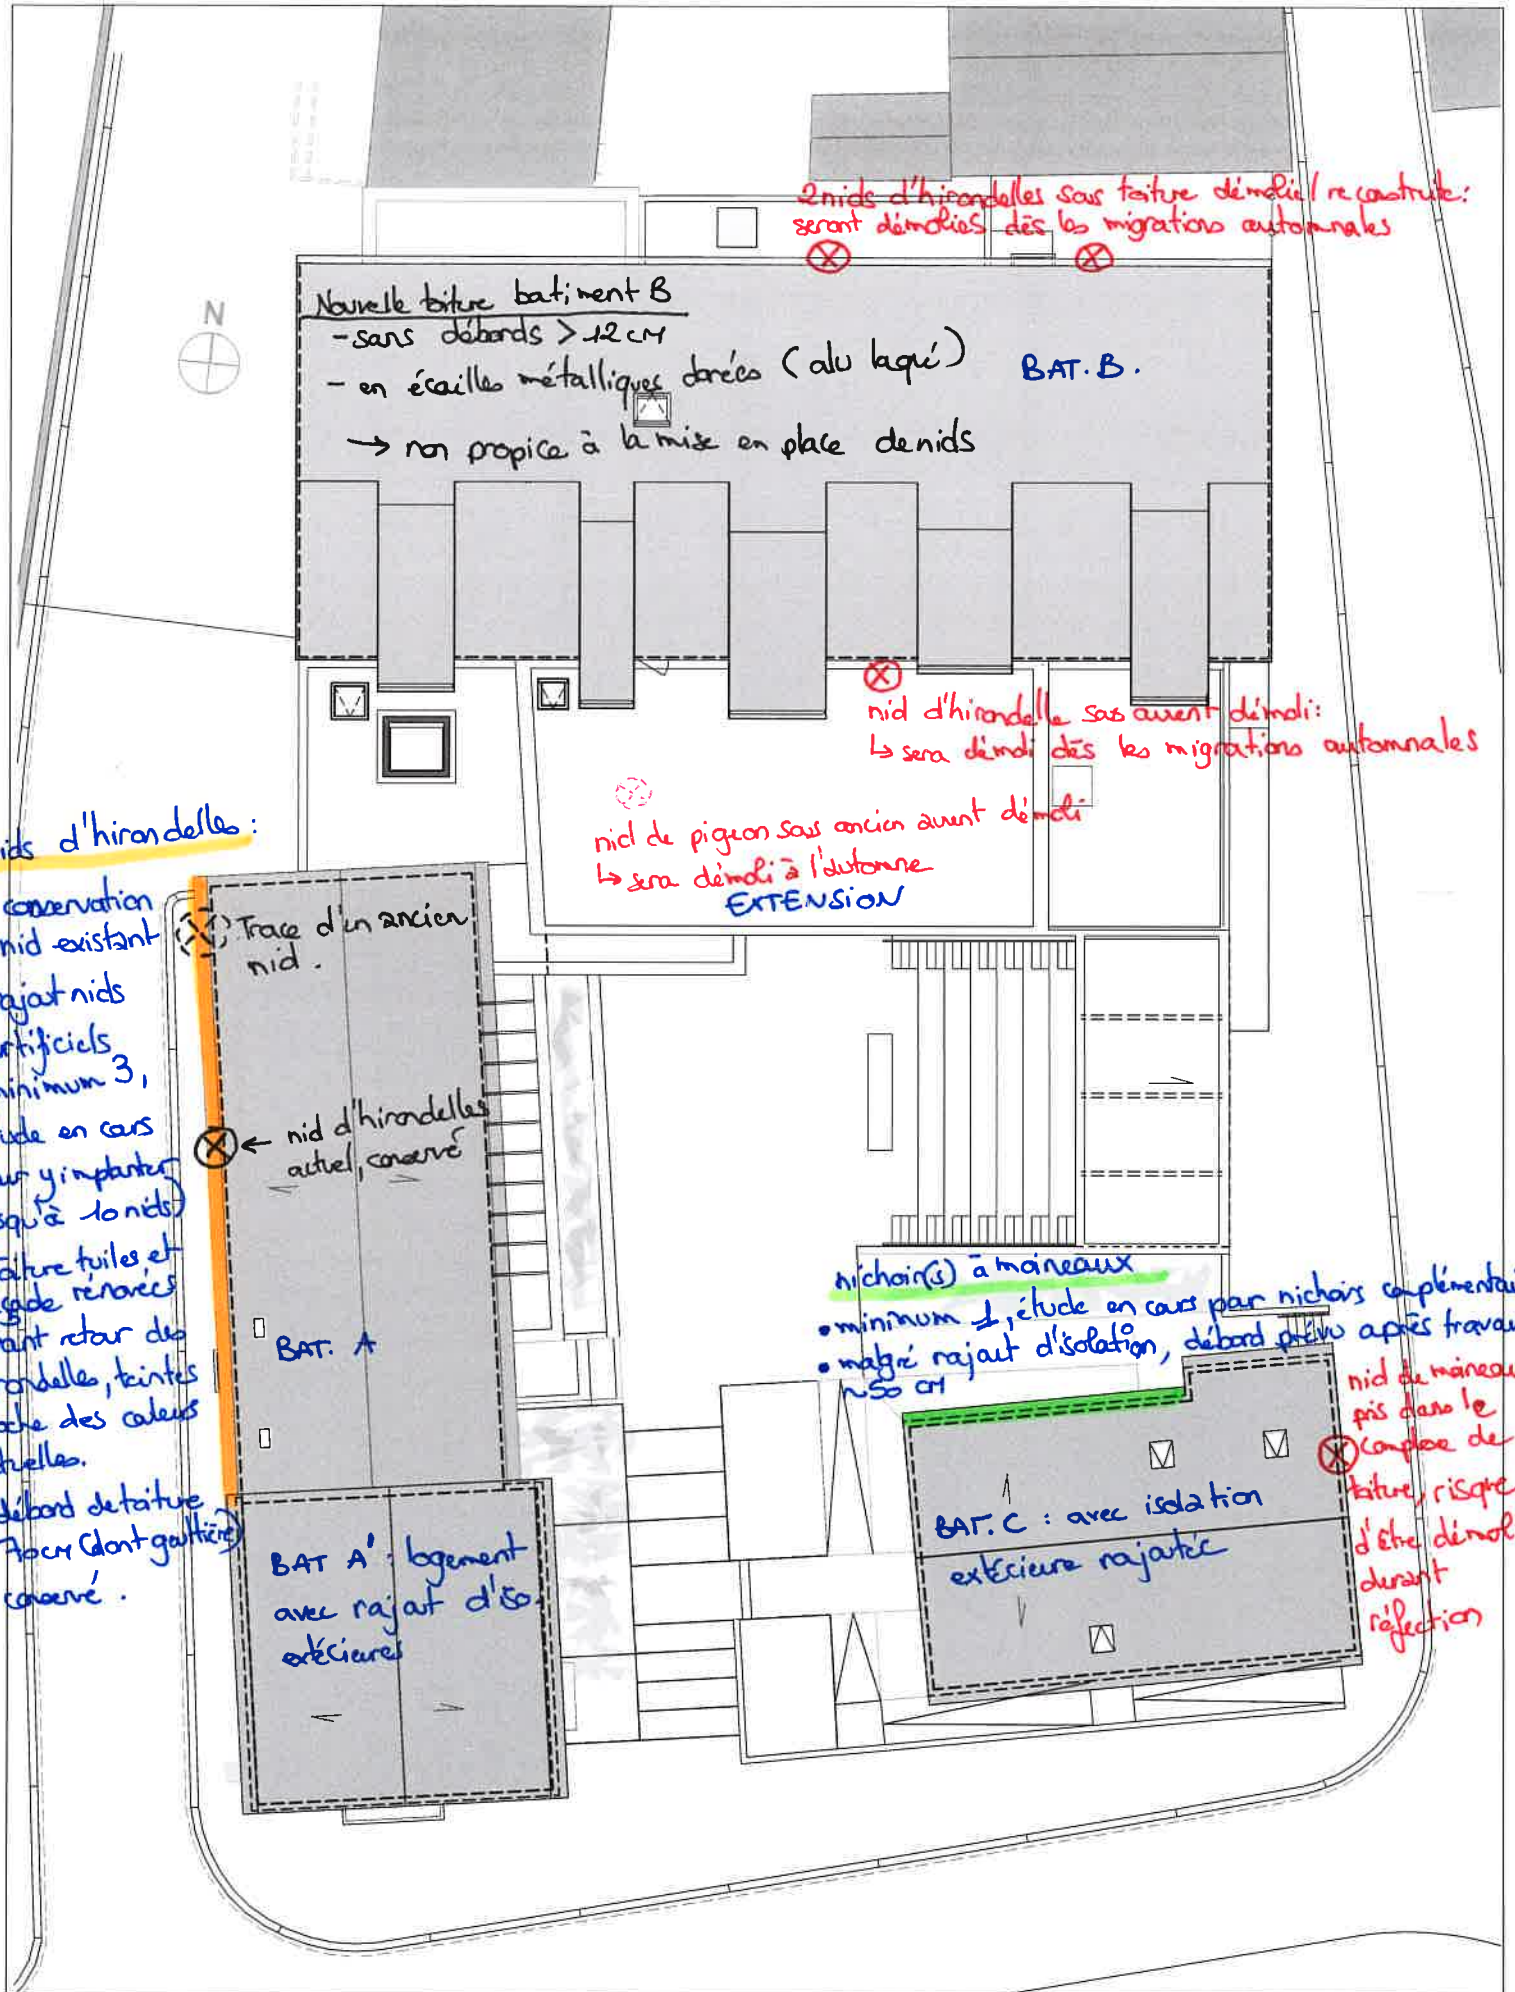 2 nids d'hirondelles sous toiture démolie/reconstruite:
seront démolies dès les migrations automnales
N
Nouvelle toiture batiment B
- sans débords > 12 cm
- en écailles métalliques dorées (alu laqué)
→ non propice à la mise en place de nids
BAT. B.
nid d'hirondelle sous auvent démoli:
↳ sera démoli dès les migrations automnales
nid de pigeon sous ancien auvent démoli
↳ sera démoli à l'automne
EXTENSION
ids d'hirondelles :
conservation
nid existant
rajout nids
rtificiels
minimum 3,
ude en cours
ur y implanter
squ'à 10 nids)
oiture tuiles, et
çade rénovées
ant retour des
rondelles, teintes
oche des couleurs
tuelles.
débord de toiture
70cm (dont gouttière)
conservé.
Trace d'un ancien
nid.
← nid d'hirondelles
actuel, conservé
BAT. A
BAT A' : logement
avec rajout d'iso.
extérieures
nichoir(s) à moineaux
• minimum 1, étude en cours par nichoirs complémentai
• malgré rajout d'isolation, débord prévu après travau
~50 cm
nid de moineau
pris dans le
complexe de
toiture, risque
d'être démol
durant
réfection
BAT. C : avec isolation
extérieure rajoutée